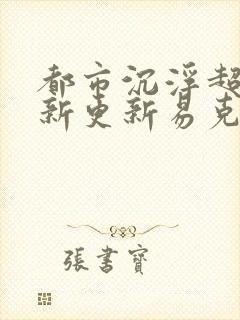 都市沉浮超
新更新易克
張書寶